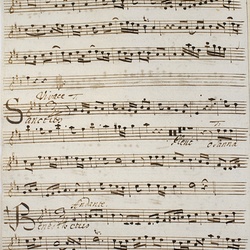 Adagio
Sanctus
Pleni Osanna
Andante
Benedictus